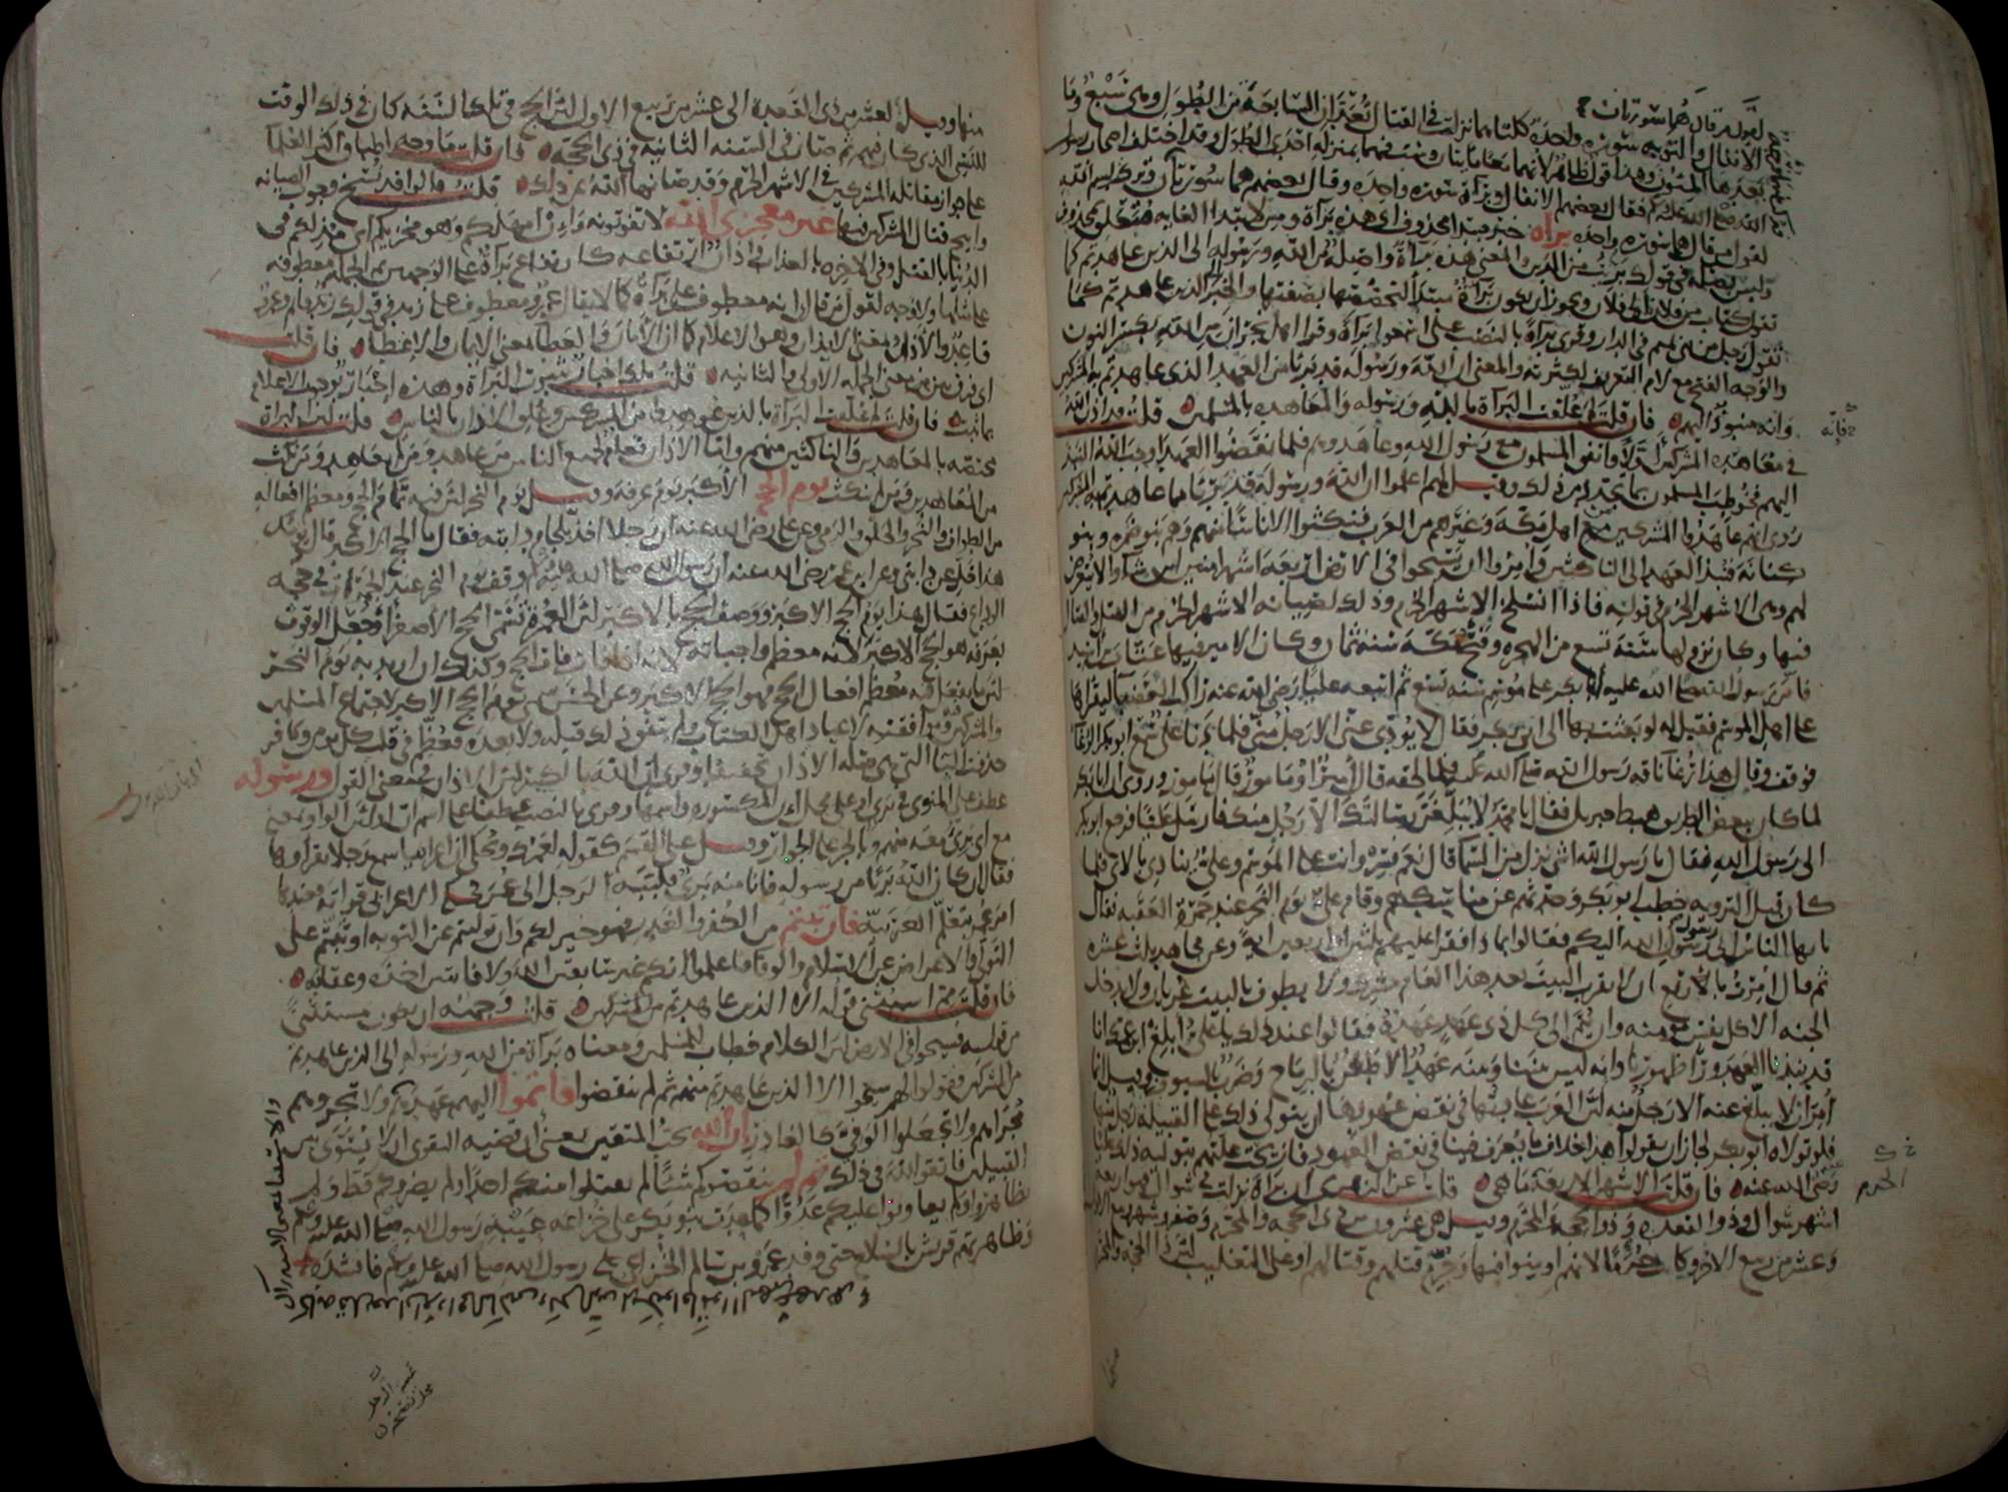 الانفال والتوبه سوره واحدة كلتاهما نزلت في القتال تُعَدّان السابعة من الطُوَل وهى سَبْع وما
بعدها المئون وهذا قول ظاهر لانهما معا مايتان وست فهما بمنزلة احدى الطول وقد اختلف اصحاب رسول
الله صلى الله عليه وسلم فقال بعضهم الانفال وبراة سورة واحدة وقال بعضهم هما سورتان
لقول من قال هما سوره واحده براة خبر مبتدا محذوف اى هذه براة ومن لابتدا الغايه متعلق بمحذوف
وليس بصلة في قولك برئت من الدين والمعنى هذه براة واصلة من الله ورسوله الى الذين عاهدتم كما
تقول كتاب من فلان الى فلان ويجوز ان يكون براة مبتدأ لتخصصها بصفتها والخبر الى الذين عاهدتم كما
تقول رجل من بنى تميم في الدار وقرى براة بالنصب على اسمعوا براة وقرا اهل نجران من الله بكسر النون
والوجه الفتح مع لام التعريف لكثرته والمعنى ان الله ورسوله قد برئا من العهد الذى عاهدتم به المشركين
وانه منبوذ اليهم فان قلت لم علقت البراة بالله ورسوله والمعاهده بالمسلمين قلت قد اذن الله
في معاهدة المشركين اولا فاتفق المسلمون مع رسول الله وعاهدوهم فلما نقضوا العهد اوجب الله النبذ
اليهم فخوطب المسلمون بما تجدد من ذلك وقيل لهم اعلموا ان الله ورسوله قد برئا مما عاهدتم به المشركين
روى انهم عاهدوا المشركين من اهل مكة وغيرهم من العرب فنكثوا الا ناسا منهم وهم بنو ضمره وبنو
كنانة فنبذ العهد الى الناكثين وامروا ان يسيحوا في الارض اربعة اشهر امنين اين شاوا لا يتعرض
لهم وهى الاشهر الحرم في قوله فاذا انسلخ الاشهر الحرم وذلك لصيانه الاشهر الحرم من القتل والقتال
فيها وكان نزولها سنة تسع من الهجره وفتح مكة سنة ثمان وكان الامير فيها عتاب بن اسيد
فامر رسول الله صلى الله عليه ابا بكر على موسم سنه تسع ثم اتبعه عليا رضى الله عنه راكب العضبا ليقراها
على اهل الموسم فقيل له لو بعثت بها الى ابى بكر فقال لا يؤدى عنى الا رجل منى فلما دنا على سمع ابو بكر الرغا
فوقف وقال هذا رغا ناقة رسول الله صلى الله عليه فلما لحقه قال امير او مامور قال مامور وروى ان ابا بكر
لما كان ببعض الطريق هبط جبريل فقال يا محمد لا يبلغن رسالتك الا رجل منك فارسل عليا فرجع ابو بكر
الى رسول الله فقال يا رسول الله اشى نزل من السما قال نعم فسر وانت على الموسم وعلى ينادى بالاى فلما
كان قبل الترويه خطب ابو بكر وحدثهم عن مناسكهم وقام على يوم النحر عند جمرة العقبه فقال
يا ايها الناس انى رسول رسول الله اليكم فقالوا بماذا فقرا عليهم ثلثين او اربعين اية وعن مجاهد ثلث عشره
ثم قال امرت باربع ان لا يقرب البيت بعد هذا العام مشرك ولا يطوف بالبيت عريان ولا يدخل
الجنه الا كل نفس مومنه وان يتم الى كل ذى عهد عهده فقالوا عند ذلك يا على ابلغ ابن عمك انا
قد نبذنا العهد ورا ظهورنا وانه ليس بيننا وبينه عهد الا طعن بالرماح وضرب بالسيوف وقيل انما
امر ان لا يبلغ عنه الا رجل منه لان العرب عادتها في نقض عهودها ان يتولى ذلك على القبيلة رجل منها
فلو تولاه ابو بكر لجاز ان يقولوا هذا خلاف ما يعرف فينا في نقض العهود فازيحت علتهم بتوليه ذلك عليا
رضى الله عنه فان قلت الاشهر الاربعة ما هى قلت عن الزهرى ان براة نزلت في شوال فهى اربعة
اشهر شوال وذو القعده وذو الحجة والمحرم وقيل هى عشرون من ذى الحجه والمحرم وصفر وشهر ربيع الاول
وعشر من ربيع الاخر وكانت حرما لانهم اومنوا فيها وحرم قتلهم وقتالهم او على التغليب لان ذا الحجه والمحرم
فانه
الحرم
منها وقيل لعشر من ذى القعده الى عشر من ربيع الاول لان الحج في تلك السنه كان في ذلك الوقت
للنسى الذى كان فيهم ثم صار في السنه الثانيه في ذى الحجه فان قلت ما وجه اطباق اكثر العلما
على جواز مقاتلة المشركين في الاشهر الحرم وقد صانها الله عن ذلك قلت قالوا قد نسخ وجوب الصيانه
وابيح قتال المشركين فيها غير معجزى الله لا تفوتونه وان امهلكم وهو مخزيكم اى مذلكم في
الدنيا بالقتل وفي الاخره بالعذاب واذان ارتفاعه كارتفاع براة على الوجهين ثم الجمله معطوفه
على مثلها ولا وجه لقول من قال انه معطوف على براة كما لا يقال عمرو معطوف على زيد في قولك زيد قايم وعمرو
قاعد والاذان بمعنى الايذان وهو الاعلام كما ان الامان والعطا بمعنى الايمان والاعطا فان قلت
اى فرق بين معنى الجمله الاولى والثانيه قلت تلك اخبار بثبوت البراة وهذه اخبار بوجوب الاعلام
بما ثبت فان قلت لم علقت البراة بالذين عوهدوا من المشركين وعلق الاذان بالناس قلت لان البراة
مختصه بالمعاهدين والناكثين منهم واما الاذان فعام لجميع الناس من عاهد ومن لم يعاهد ومن نكث
من المعاهدين ومن لم ينكث يوم الحج الاكبر يوم عرفه وقيل يوم النحر لان فيه تمام الحج ومعظم افعاله
من الطواف والنحر والحلق والرمى وعن على رضى الله عنه ان رجلا اخذ بلجام دابته فقال ما الحج الاكبر قال يومك
هذا خل عن دابتى وعن ابن عمر رضى الله عنه ان رسول الله صلى الله عليه وقف يوم النحر عند الجمرات في حجة
الوداع فقال هذا يوم الحج الاكبر ووصف الحج بالاكبر لان العمرة تسمى الحج الاصغر او جعل الوقوف
بعرفه هو الحج الاكبر لانه معظم واجباته لانه اذا فات فات الحج وكذلك ان اريد به يوم النحر
لان ما يفعل فيه معظم افعال الحج فهو الحج الاكبر وعن الحسن سمى يوم الحج الاكبر لاجتماع المسلمين
والمشركين فيه وموافقته لاعياد اهل الكتاب ولم يتفق ذلك قبله ولا بعده فعظم في قلب كل مومن وكافر
حذفت البا التى هى صلة الاذان تخفيفا وقرى ان الله بالكسر لان الاذان في معنى القول ورسوله
عطف على المنوى في برى او على محل ان المكسوره واسمها وقرى بالنصب عطفا على اسم ان او لان الواو بمعنى
مع اى برى معه منهم وبالجر على الجوار وقيل على القسم كقوله لعمرك ويحكى ان اعرابيا سمع رجلا يقراها
فقال ان كان الله بريا من رسوله فانا منه برى فلببه الرجل الى عمر فحكى الاعرابى قراته فعندها
امر عمر بتعلم العربية فان تبتم من الكفر والغدر فهو خير لكم وان توليتم عن التوبه او ثبتم على
التولى والاعراض عن الاسلام والوفا فاعلموا انكم غير سابقين الله ولا فايتين اخذه وعقابه
فان قلت مم استثنى قوله الا الذين عاهدتم من المشركين قلت وجهه ان يكون مستثنى
من قوله فسيحوا في الارض لان الكلام خطاب للمسلمين ومعناه براة من الله ورسوله الى الذين عاهدتم
من المشركين فقولوا لهم سيحوا الا الذين عاهدتم منهم ثم لم ينقضوا فاتموا اليهم عهدهم ولا تجروهم
مجراهم ولا تجعلوا الوفى كالغادر ان الله يحب المتقين يعنى ان قضية التقوى ان لا يسوى بين
القبيلين فاتقوا الله في ذلك ثم لم ينقصوكم شيئا لم يقتلوا منكم احدا ولم يضروكم قط ولم
يظاهروا ولم يعاونوا عليكم عدوا كما عدت بنو بكر على خزاعه عيبة رسول الله صلى الله عليه وسلم
وظاهرتهم قريش بالسلاح حتى وفد عمرو بن سالم الخزاعى على رسول الله صلى الله عليه وسلم فانشده
والاستثنا بمعنى الاستدراك